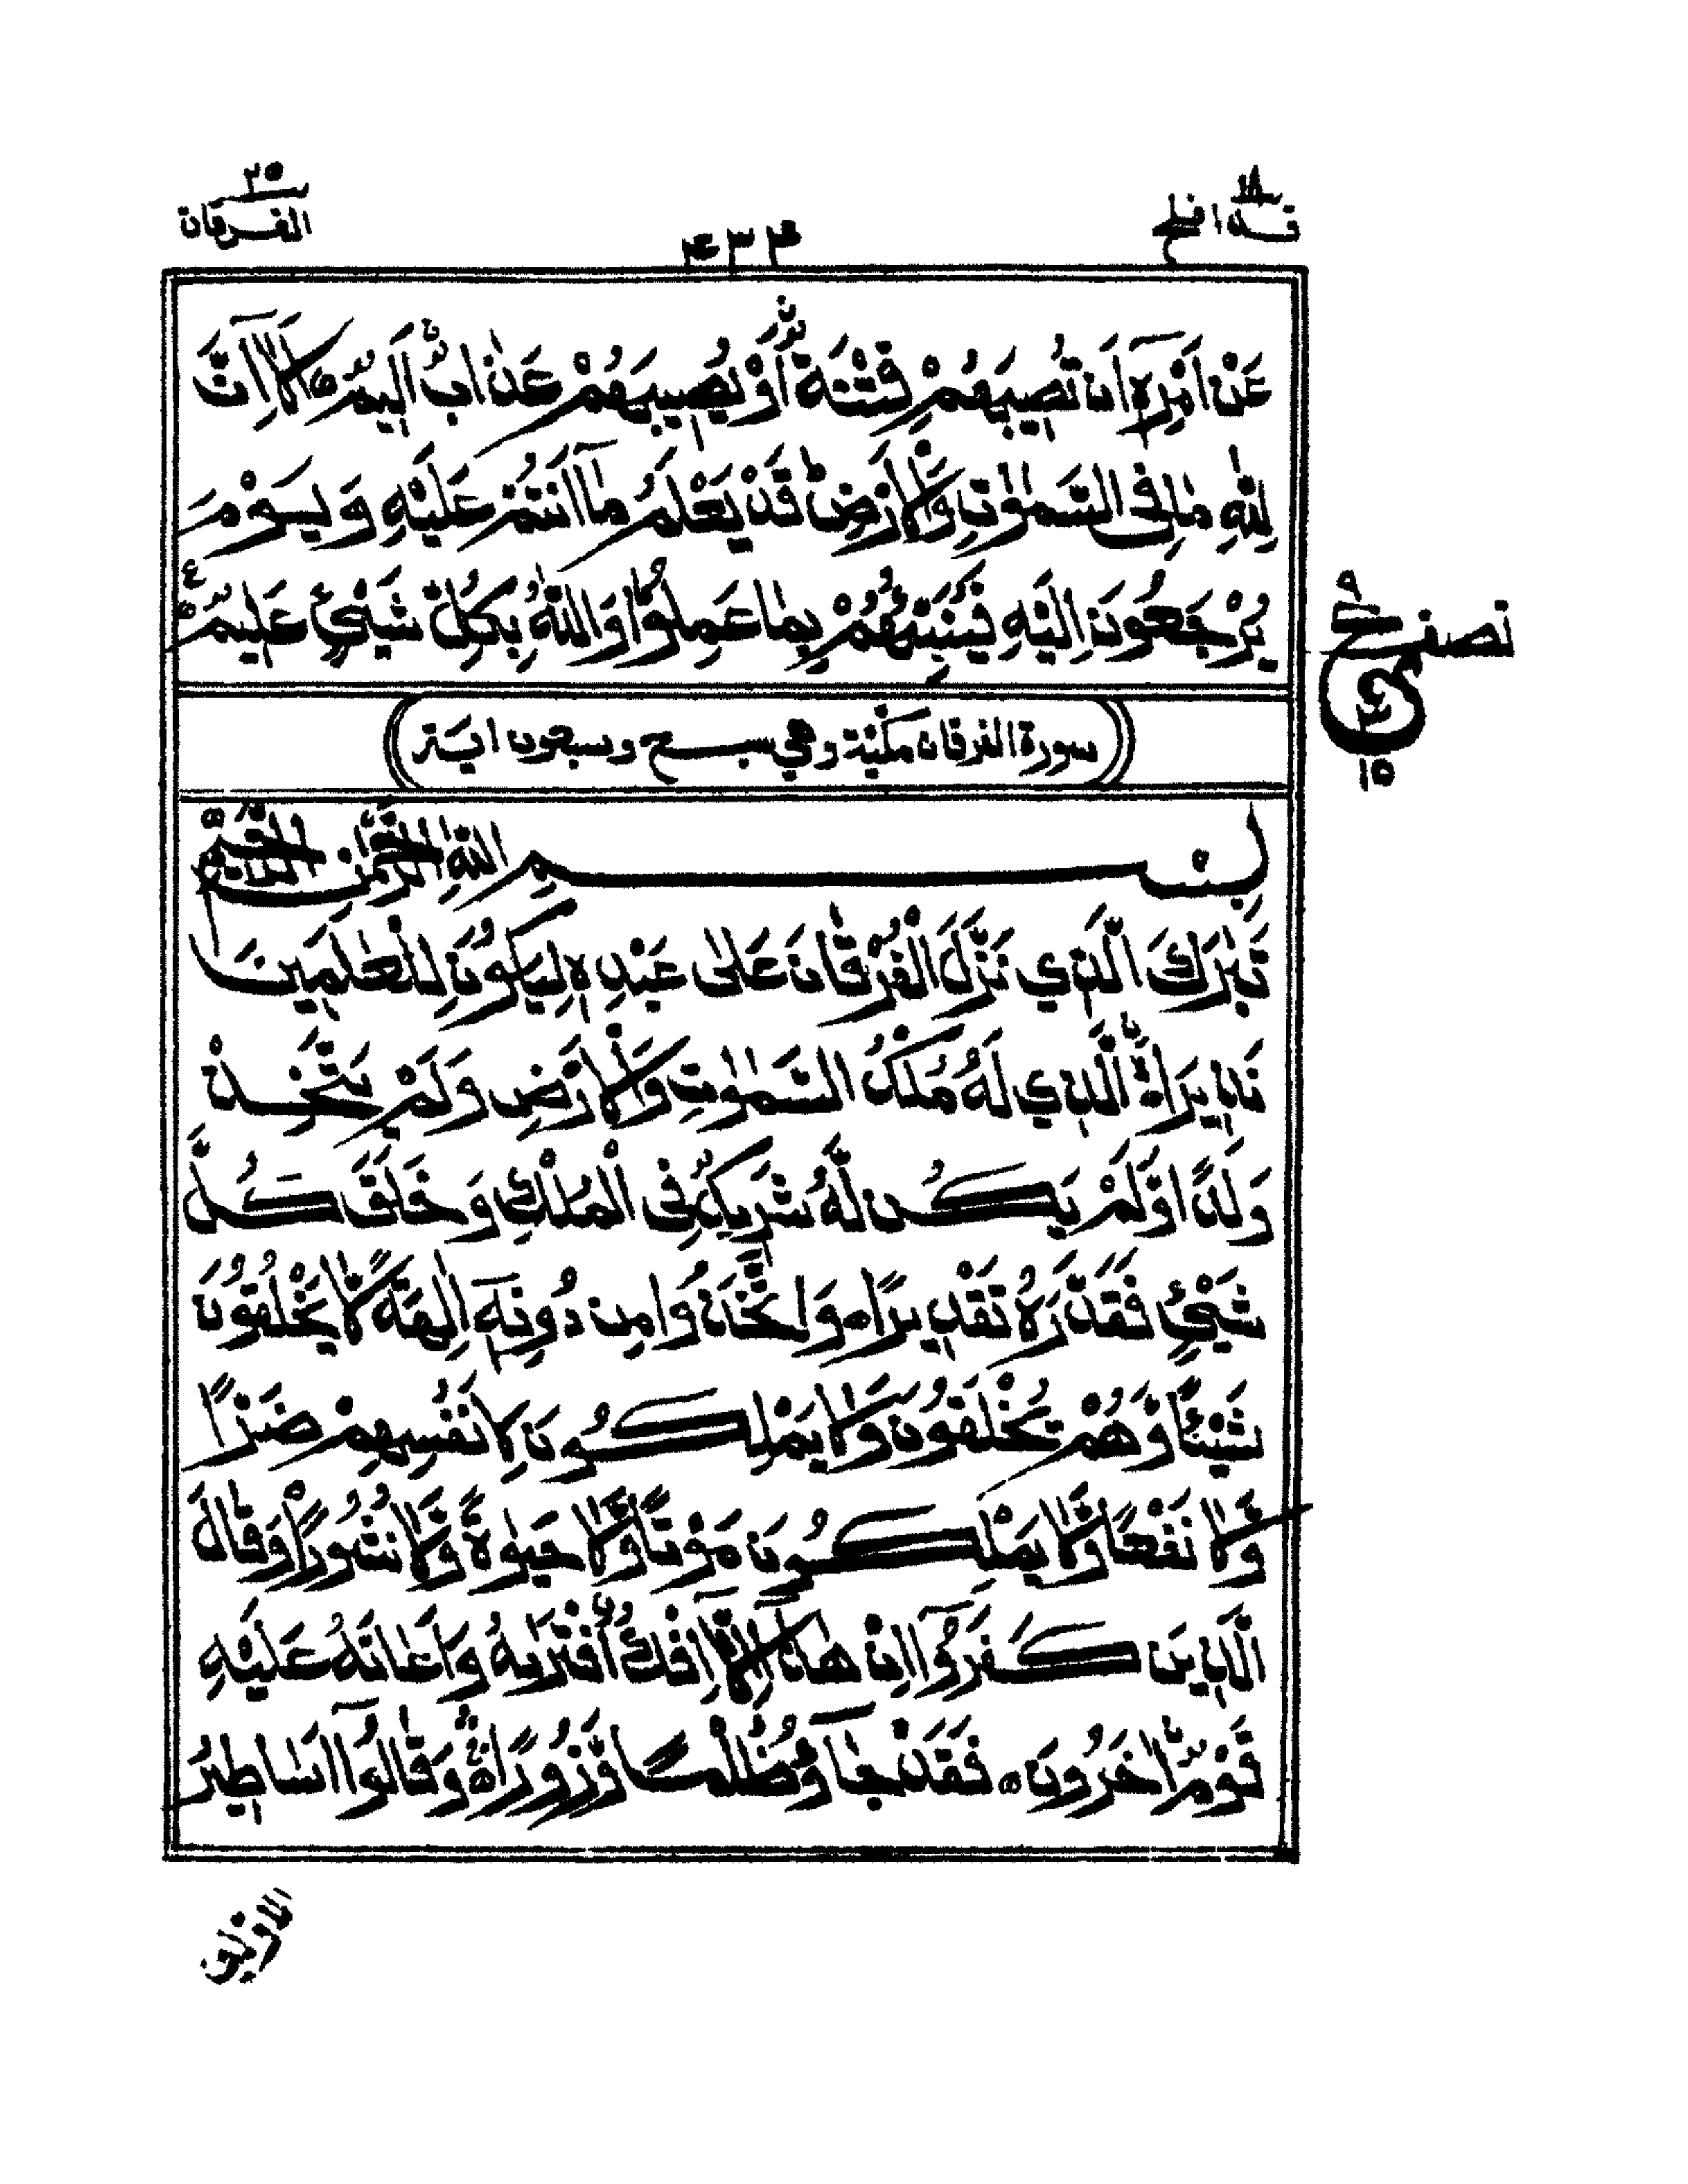 قد افلح ١٨
٤٣٤
الفرقان ٢٥
عَنْ اَمْرِهٖٓ اَنْ تُصِيْبَهُمْ فِتْنَةٌ اَوْ يُصِيْبَهُمْ عَذَابٌ اَلِيْمٌ ۝ اَلَآ اِنَّ
لِلّٰهِ مَا فِى السَّمٰوٰتِ وَالْاَرْضِ ؕ قَدْ يَعْلَمُ مَآ اَنْتُمْ عَلَيْهِ وَيَوْمَ
يُرْجَعُوْنَ اِلَيْهِ فَيُنَبِّئُهُمْ بِمَا عَمِلُوْا وَاللّٰهُ بِكُلِّ شَيْئٍ عَلِيْمٌ
نصف
٩
ع
١٥
سورة الفرقان مكية وهي سبع وسبعون اية
بِسْمِ اللّٰهِ الرَّحْمٰنِ الرَّحِيْمِ
تَبٰرَكَ الَّذِي نَزَّلَ الْفُرْقَانَ عَلٰى عَبْدِهٖ لِيَكُوْنَ لِلْعٰلَمِيْنَ
نَذِيْرَا ۝ الَّذِي لَهٗ مُلْكُ السَّمٰوٰتِ وَالْاَرْضِ وَلَمْ يَتَّخِذْ
وَلَدًا وَّلَمْ يَكُنْ لَّهٗ شَرِيْكٌ فِى الْمُلْكِ وَخَلَقَ كُلَّ
شَيْئٍ فَقَدَّرَهٗ تَقْدِيْرًا ۝ وَاتَّخَذُوْا مِنْ دُوْنِهٖٓ اٰلِهَةً لَّا يَخْلُقُوْنَ
شَيْئًا وَّهُمْ يُخْلَقُوْنَ وَلَا يَمْلِكُوْنَ لِاَنْفُسِهِمْ ضَرًّا
وَّلَا نَفْعًا وَّلَا يَمْلِكُوْنَ مَوْتًا وَّلَا حَيٰوةً وَّلَا نُشُوْرًا وَقَالَ
الَّذِيْنَ كَفَرُوْٓا اِنْ هٰذَآ اِلَّآ اِفْكٌ افْتَرٰىهُ وَاَعَانَهٗ عَلَيْهِ
قَوْمٌ اٰخَرُوْنَ ۝ فَقَدْ جَآءُوْ ظُلْمًا وَّزُوْرًا ۝ وَقَالُوْٓا اَسَاطِيْرُ
الاولين